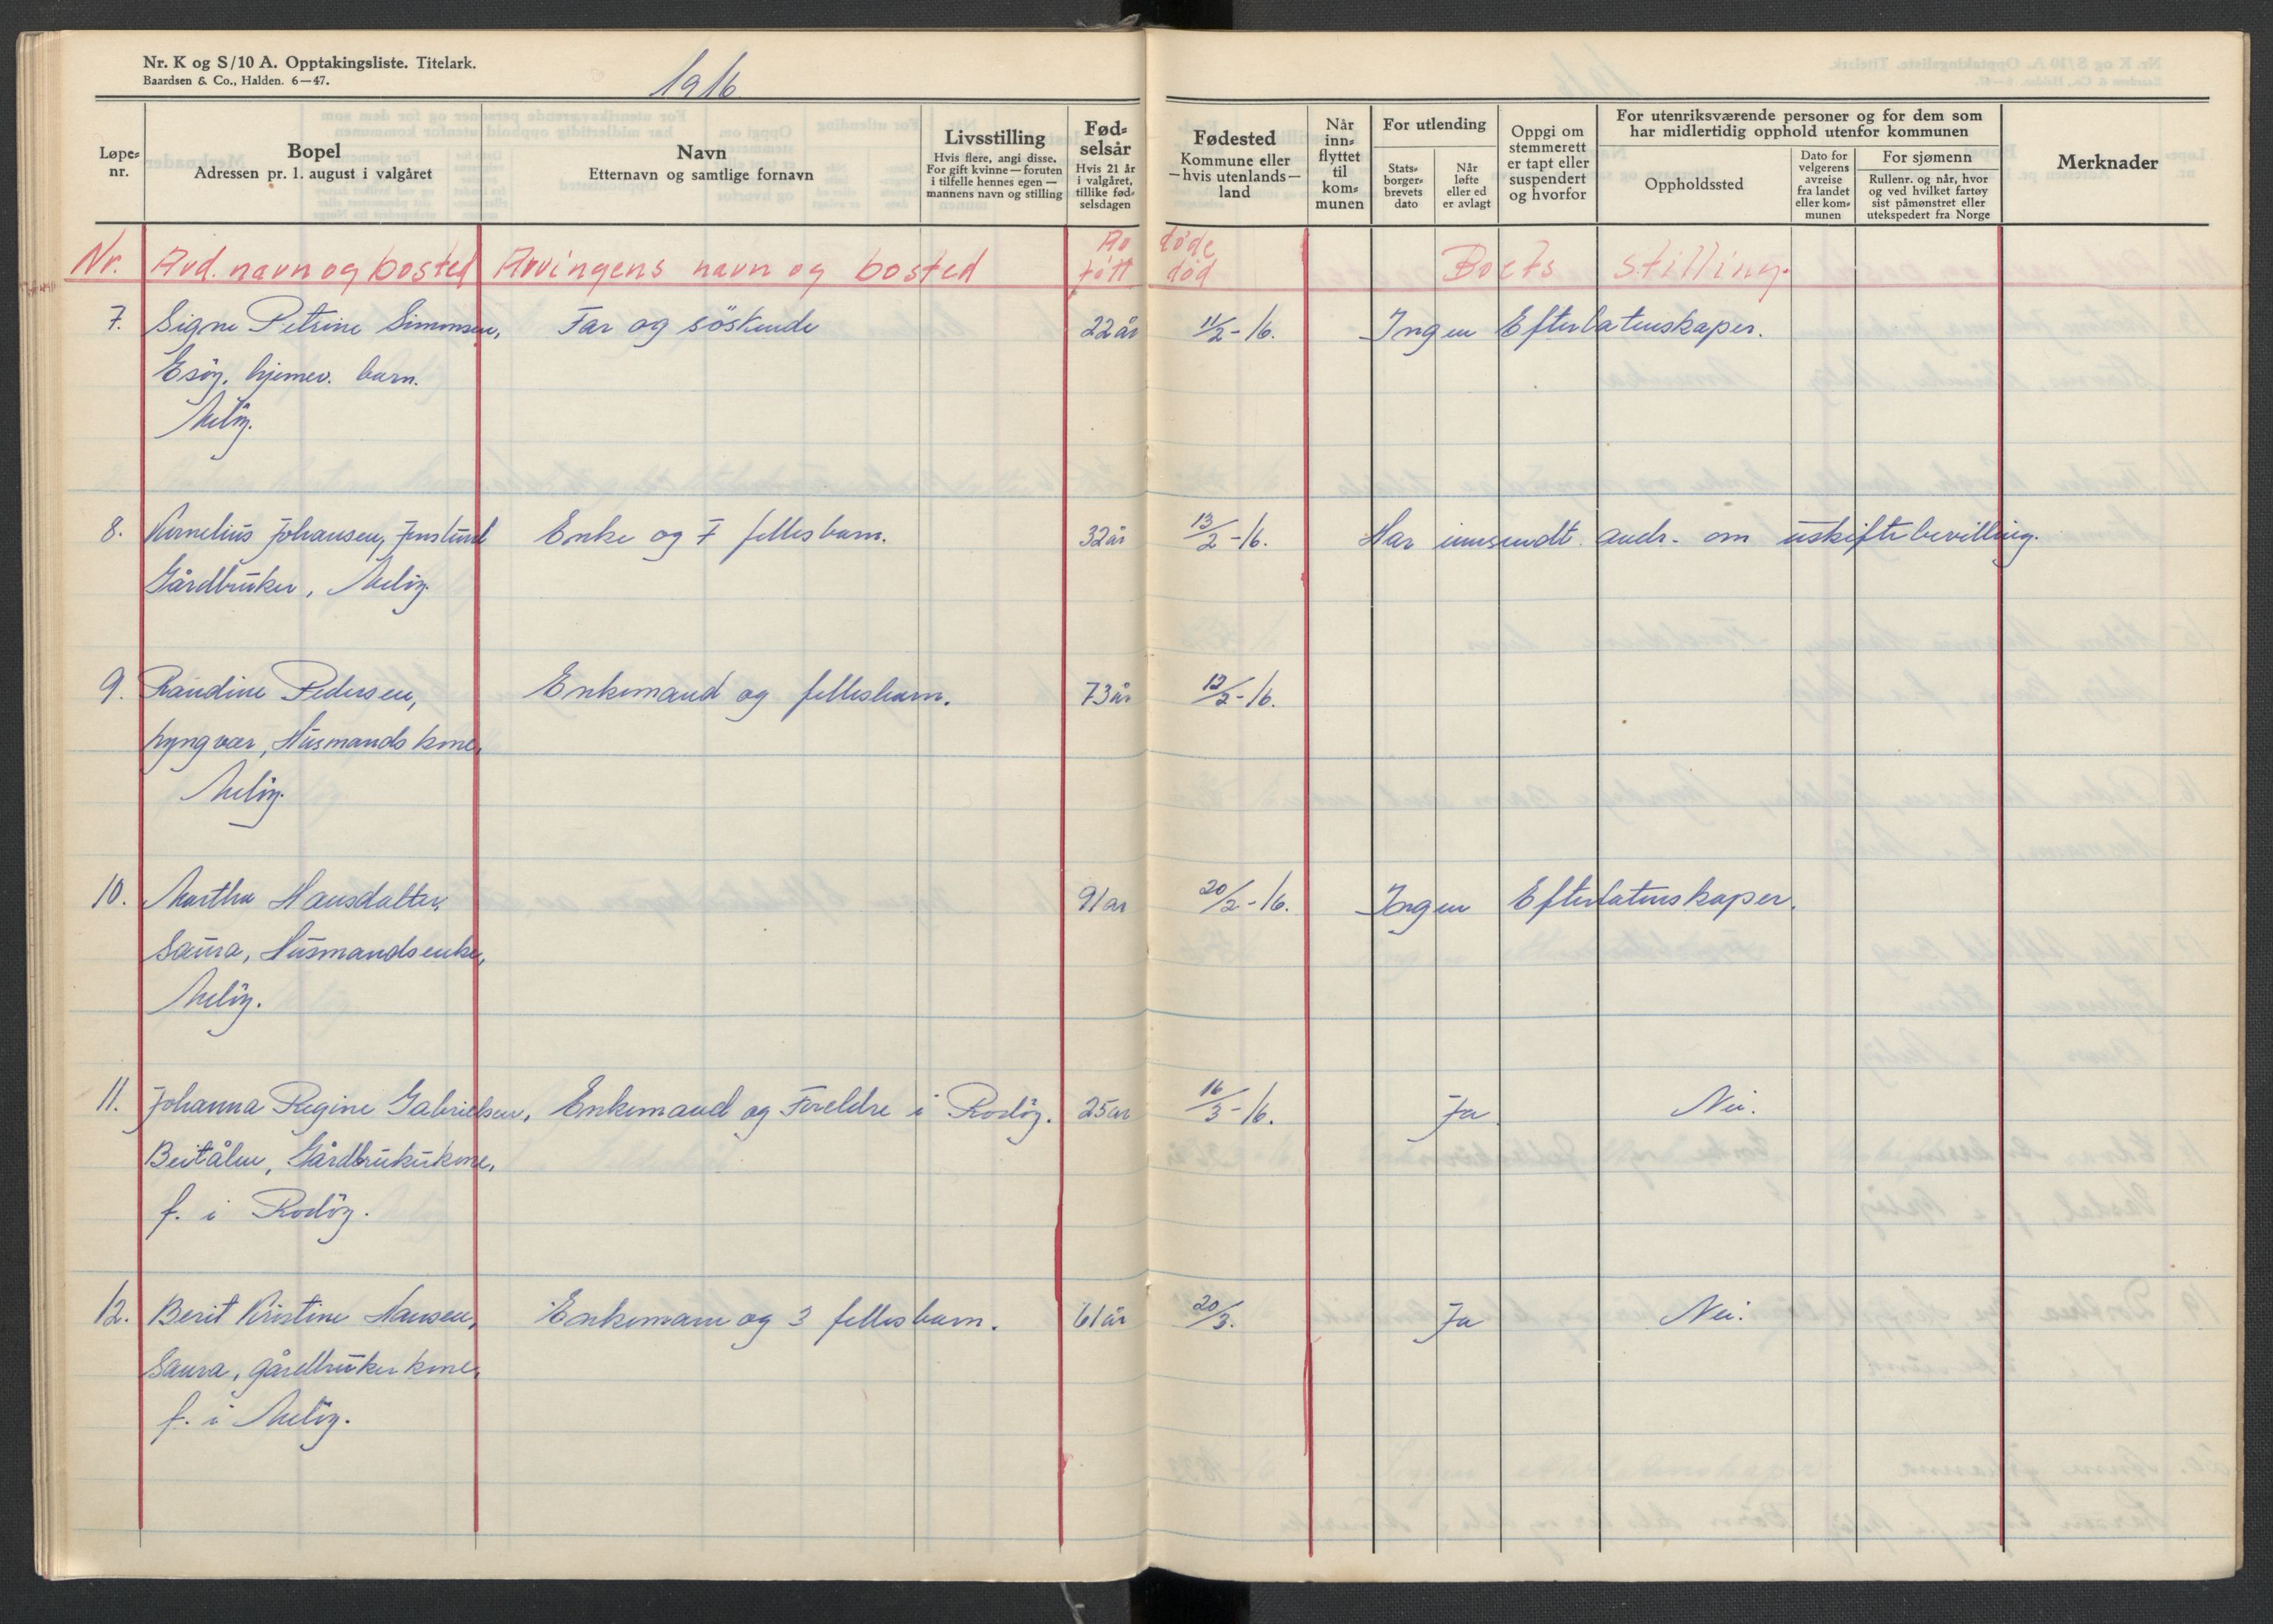 Nr. K og S/10 A. Opptakingsliste. Titelark.
Baardsen & Co., Halden. 6—47.
1916
Løpe-nr.
Bopel
Adressen pr. 1. august i valgåret
Navn
Etternavn og samtlige fornavn
Livsstilling
Hvis flere, angi disse.
For gift kvinne — foruten
i tilfelle hennes egen —
mannens navn og stilling
Fød-
selsår
Hvis 21 år
i valgåret,
tillike fød-
selsdagen
Fødested
Kommune eller
— hvis utenlands —
land
Når
inn-
flyttet
til
kom-
munen
For utlending
Stats-
borger-
brevets
dato
Når
løfte
eller ed
er avlagt
Oppgi om
stemmerett
er tapt eller
suspendert
og hvorfor
For utenriksværende personer og for dem som
har midlertidig opphold utenfor kommunen
Oppholdssted
Dato for
velgerens
avreise
fra landet
eller kom-
munen
For sjømenn
Rullenr. og når, hvor
og ved hvilket fartøy
sist påmønstret eller
utekspedert fra Norge
Merknader
Nr. Avd. navn og bosted Arvingens navn og bosted Av døde født død Boets stilling.
7. Signe Petrine Simonsen, Far og söskende 22 år 11/2-16. Ingen Efterlatenskaper.
Esöy. hjemev. barn.
Melöy.
8. Kornelius Johansen, Jenslund Enke og 7 felles barn. 32 år 13/2-16. Har innsendt andr. om uskiftebevilling.
Gårdbruker, Melöy.
9. Randine Pedersen, Enkemand og felles barn. 73 år 12/2-16.
Lyngvær, Husmands kone,
Melöy.
10. Martha Hansdatter, 91 ar 20/2-16. Ingen Efterlatenskaper.
Saura, Husmandsenke,
Melöy.
11. Johanna Regine Gabrielsen, Enkemand og Foreldre i Rodöy. 25 ar 16/3-16. Ja. Nei.
Beitålen, Gårdbrukerkone,
f. i Rodöy.
12. Berit Kristine Hansen, Enkemann og 3 felles barn. 61 år 20/3. Ja Nei.
Saura, gårdbruker kone,
f. i Melöy.